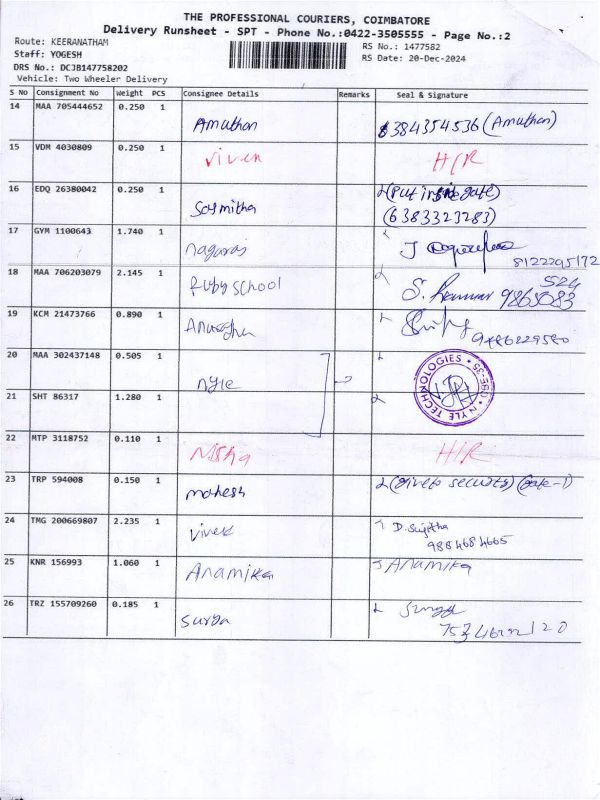 THE PROFESSIONAL COURIERS, COIMBATORE
Delivery Runsheet - SPT - Phone No.:0422-3505555 - Page No.:2
Route: KEERANATHAM
Staff: YOGESH
DRS No.: DCJB147758202
Vehicle: Two Wheeler Delivery
RS No.: 1477582
RS Date: 20-Dec-2024
S No Consignment No Weight PCS Consignee Details Remarks Seal & Signature
14 MAA 705444652 0.250 1 Amuthan 8384354536 (Amuthan)
15 VDM 4030809 0.250 1 Viven H/R
16 EDQ 26380042 0.250 1 Soymitha (Put inside gate)
(6383323283)
17 GYM 1100643 1.740 1 nagaraj
8122295172
18 MAA 706203079 2.145 1 Ruby school S. Kannan
19 KCM 21473766 0.890 1 Anusdha
20 MAA 302437148 0.505 1 nyle
NYLE TECHNOLOGIES • 641 035
21 SHT 86317 1.280 1
22 MTP 3118752 0.110 1 Nisha H/R
23 TRP 594008 0.150 1 mahesh (give to security) (gate-1)
24 TMG 200669807 2.235 1 Vivek D. Sujitha
9884684665
25 KNR 156993 1.060 1 Anamika Anamika
26 TRZ 155709260 0.185 1 Surya